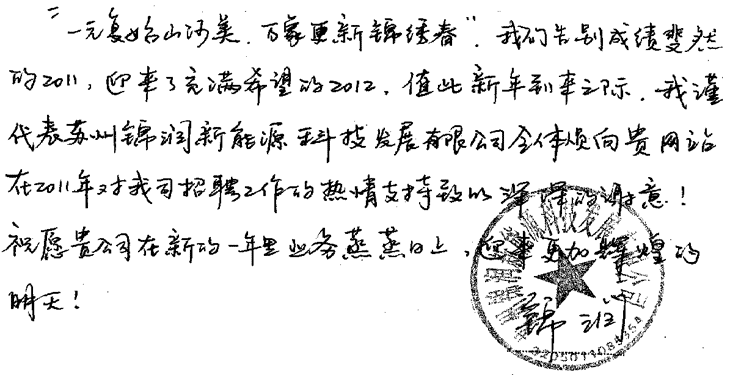 “一元复始山河美，万家更新锦绣春”。我们告别成绩斐然
的2011，迎来了充满希望的2012，值此新年到来之际，我谨
代表苏州锦润新能源科技发展有限公司全体员向贵网站
在2011年对我司招聘工作的热情支持致以深深的谢意！
祝愿贵公司在新的一年里业务蒸蒸日上，迎来更加辉煌的
明天！
锦润